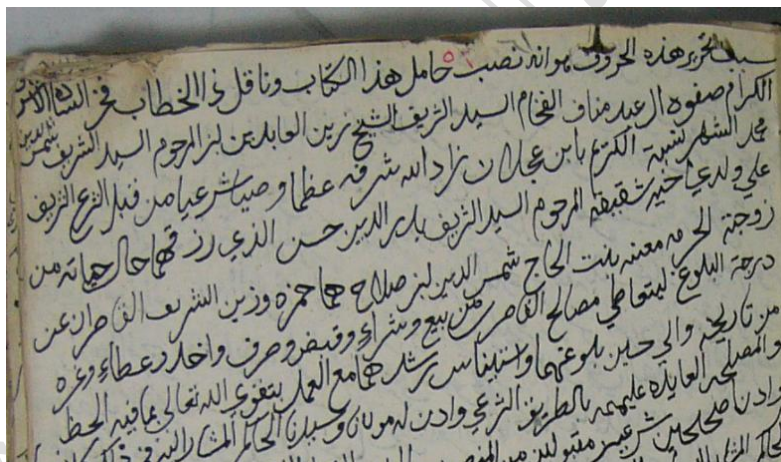 سبب تحرير هذه الحروف هو انه نصب حامل هذا الكتاب وناقل ذا الخطاب فخر السادة الاشراف
الكرام صفوة ال عبد مناف الفخام السيد الشريف الشيخ زين العابدين ابن المرحوم السيد الشريف شمس الدين
محمد الشهير نسبه الكريم بابن عجلان زاد الله شرفه عظما وصيا شرعيا من قبل الشرع الشريف
علي ولدي اخيه شقيقه المرحوم السيد الشريف بدر الدين حسن الذي رزقهما حال حياته من
زوجته الحرمه معينه بنت الحاج شمس الدين ابن صلاح هما حمزه وزين الشريف القاصران عن
درجة البلوغ ليتعاطي مصالح القاصرين من بيع وشراء وقبض وصرف واخذ وعطاء وغيره
من تاريخه والي حين بلوغهما واستيناس رشدهما مع العمل بتقوي الله تعالي بما فيه الحظ
والمصلحه العايده عليهما بالطريق الشرعي واذن له مولانا وسيدنا الحاكم المشار اليه في ذلك